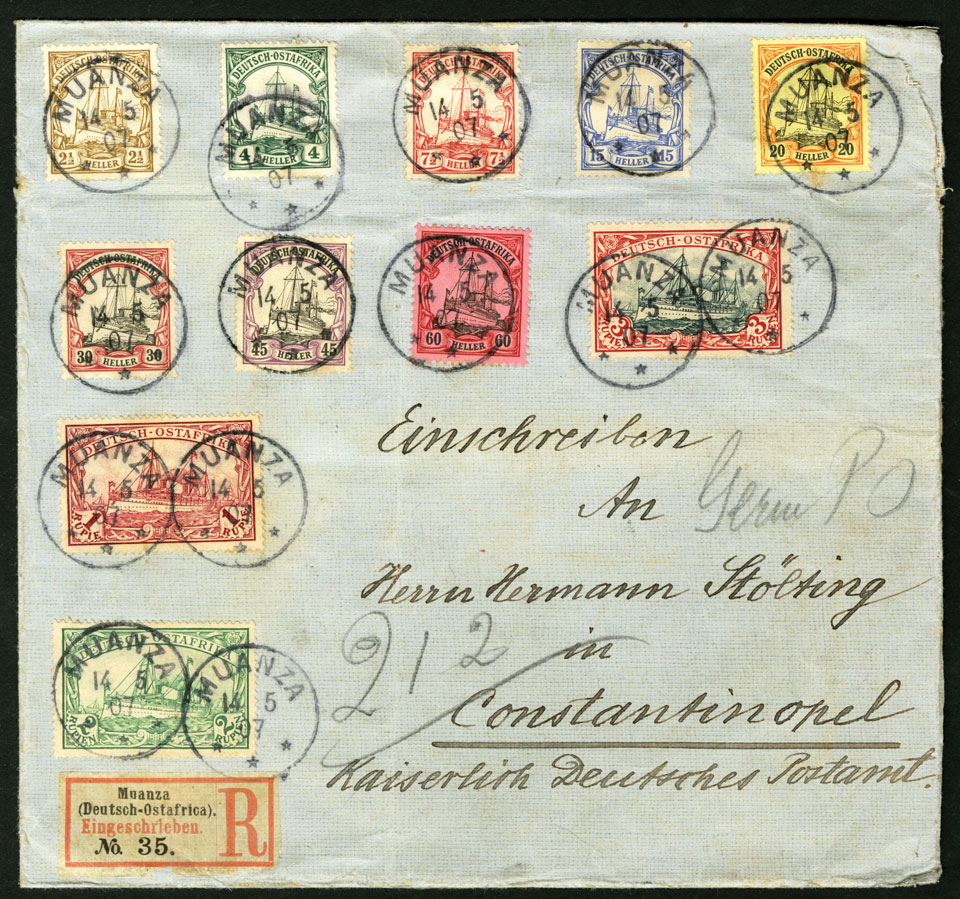 DEUTSCH-OSTAFRIKA
2½ HELLER 2½
MUANZA
14 5
07
DEUTSCH-OSTAFRIKA
4 HELLER 4
MUANZA
14 5
07
DEUTSCH-OSTAFRIKA
7½ HELLER 7½
MUANZA
14 5
07
DEUTSCH-OSTAFRIKA
15 HELLER 15
MUANZA
14 5
07
DEUTSCH-OSTAFRIKA
20 HELLER 20
MUANZA
14 5
07
DEUTSCH-OSTAFRIKA
30 HELLER 30
MUANZA
14 5
07
DEUTSCH-OSTAFRIKA
45 HELLER 45
MUANZA
14 5
07
DEUTSCH-OSTAFRIKA
60 HELLER 60
MUANZA
14 5
07
DEUTSCH-OSTAFRIKA
3 RUPIEN 3 RUPIEN
MUANZA
14 5
07
MUANZA
14 5
07
DEUTSCH-OSTAFRIKA
1 RUPIE 1 RUPIE
MUANZA
14 5
07
MUANZA
14 5
07
DEUTSCH-OSTAFRIKA
2 RUPIEN 2 RUPIEN
MUANZA
14 5
07
MUANZA
14 5
07
Einschreiben
An
Herrn Hermann Stölting
in
Constantinopel
Kaiserlich Deutsches Postamt.
Germ P O
212
Muanza
(Deutsch-Ostafrica).
Eingeschrieben.
No. 35.
R